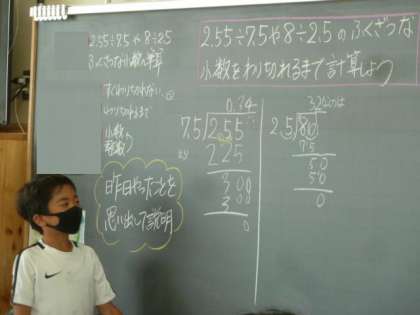 2.55÷7.5や8÷2.5のふくざつな
小数をわりきれるまで計算しよう
2.55÷7.5や8÷2.5
わりきれるまで
小数
昨日やったことを
思い出して説明
0.34
7.5)2.55
225
300
300
0
3.2
2.5)80
75
50
50
0